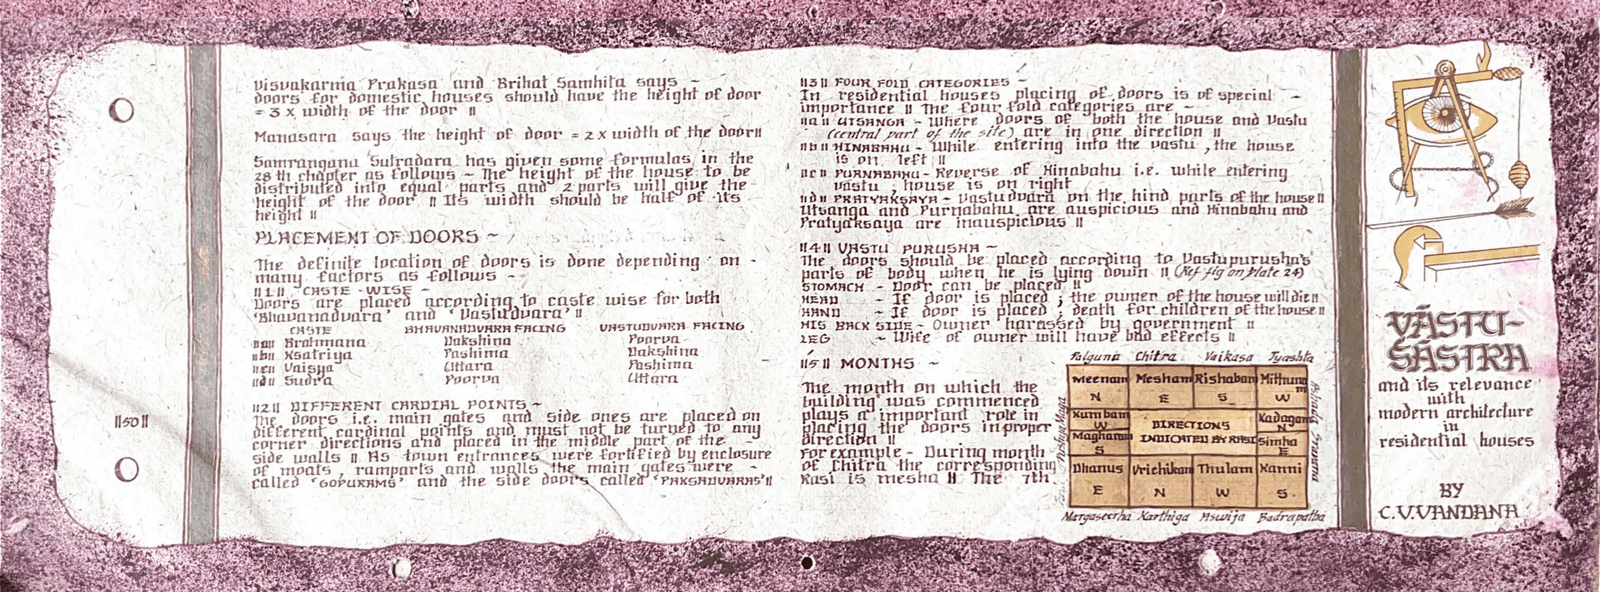 Visvakarma Prakasa and Brihat Samhita says ~
doors for domestic houses should have the height of door
= 3 x width of the door ||
Manasara says the height of door = 2 x width of the door ||
Samrangana Sutradara has given some formulas in the
28th chapter as follows ~ The height of the house to be
distributed into equal parts and 2 parts will give the
height of the door || Its width should be half of its
height ||
PLACEMENT OF DOORS ~
The definite location of doors is done depending on -
many factors as follows ~
||1|| CASTE-WISE ~
Doors are placed according to caste wise for both
'Bhavanadvara' and 'Vastudvara' ||
CASTE BHAVANADVARA FACING VASTUDVARA FACING
||a|| Brahmana Dakshina Poorva
||b|| Ksatriya Pashima Dakshina
||c|| Vaisya Uttara Pashima
||d|| Sudra Poorva Uttara
||2|| DIFFERENT CARDIAL POINTS ~
The doors i.e. main gates and side ones are placed on
different cardinal points and must not be turned to any
corner directions and placed in the middle part of the ~
side walls || As town entrances were fortified by enclosure
of moats, ramparts and walls the main gates were ~
called 'GOPURAMS' and the side doors called 'PAKSADVARAS' ||
||3|| FOUR FOLD CATEGORIES ~
In residential houses placing of doors is of special ~
importance || The four fold categories are ~
||a|| UTSANGA - Where doors of both the house and Vastu
(central part of the site) are in one direction ||
||b|| HINABAHU - While entering into the vastu, the house
is on left ||
||c|| PURNABAHU - Reverse of Hinabahu i.e. while entering
vastu, house is on right
||d|| PRATYAKSAYA - Vastudvara on the hind parts of the house ||
Utsanga and Purnabahu are auspicious and Hinabahu and
Pratyaksaya are inauspicious ||
||4|| VASTU PURUSHA ~
The doors should be placed according to Vastupurusha's
parts of body when he is lying down || (Ref fig on plate 24)
STOMACH - Door can be placed ||
HEAD - If door is placed ; the owner of the house will die ||
HAND - If door is placed ; death for children of the house ||
HIS BACK SIDE - Owner harassed by government ||
LEG ~ Wife of owner will have bad effects ||
||5|| MONTHS ~
The month on which the
building was commenced
plays a important role in
placing the doors in proper
direction ||
For example - During month
of Chitra the corresponding
Rasi is mesha || The 7th
Palguna Chitra Vaikasa Jyashta
Meenam Mesham Rishabam Mithunam
N E S W
Kumbam Kadagam
W N
DIRECTIONS
INDICATED BY RASI
Magham Simha
S E
Dhanus Vrichikam Thulam Kanni
E N W S
Margaseerha Karthiga Aswija Badrapatha
||50||
VĀSTU-
SĀSTRA
and its relevance
with
modern architecture
in
residential houses
BY
C.V.VANDANA